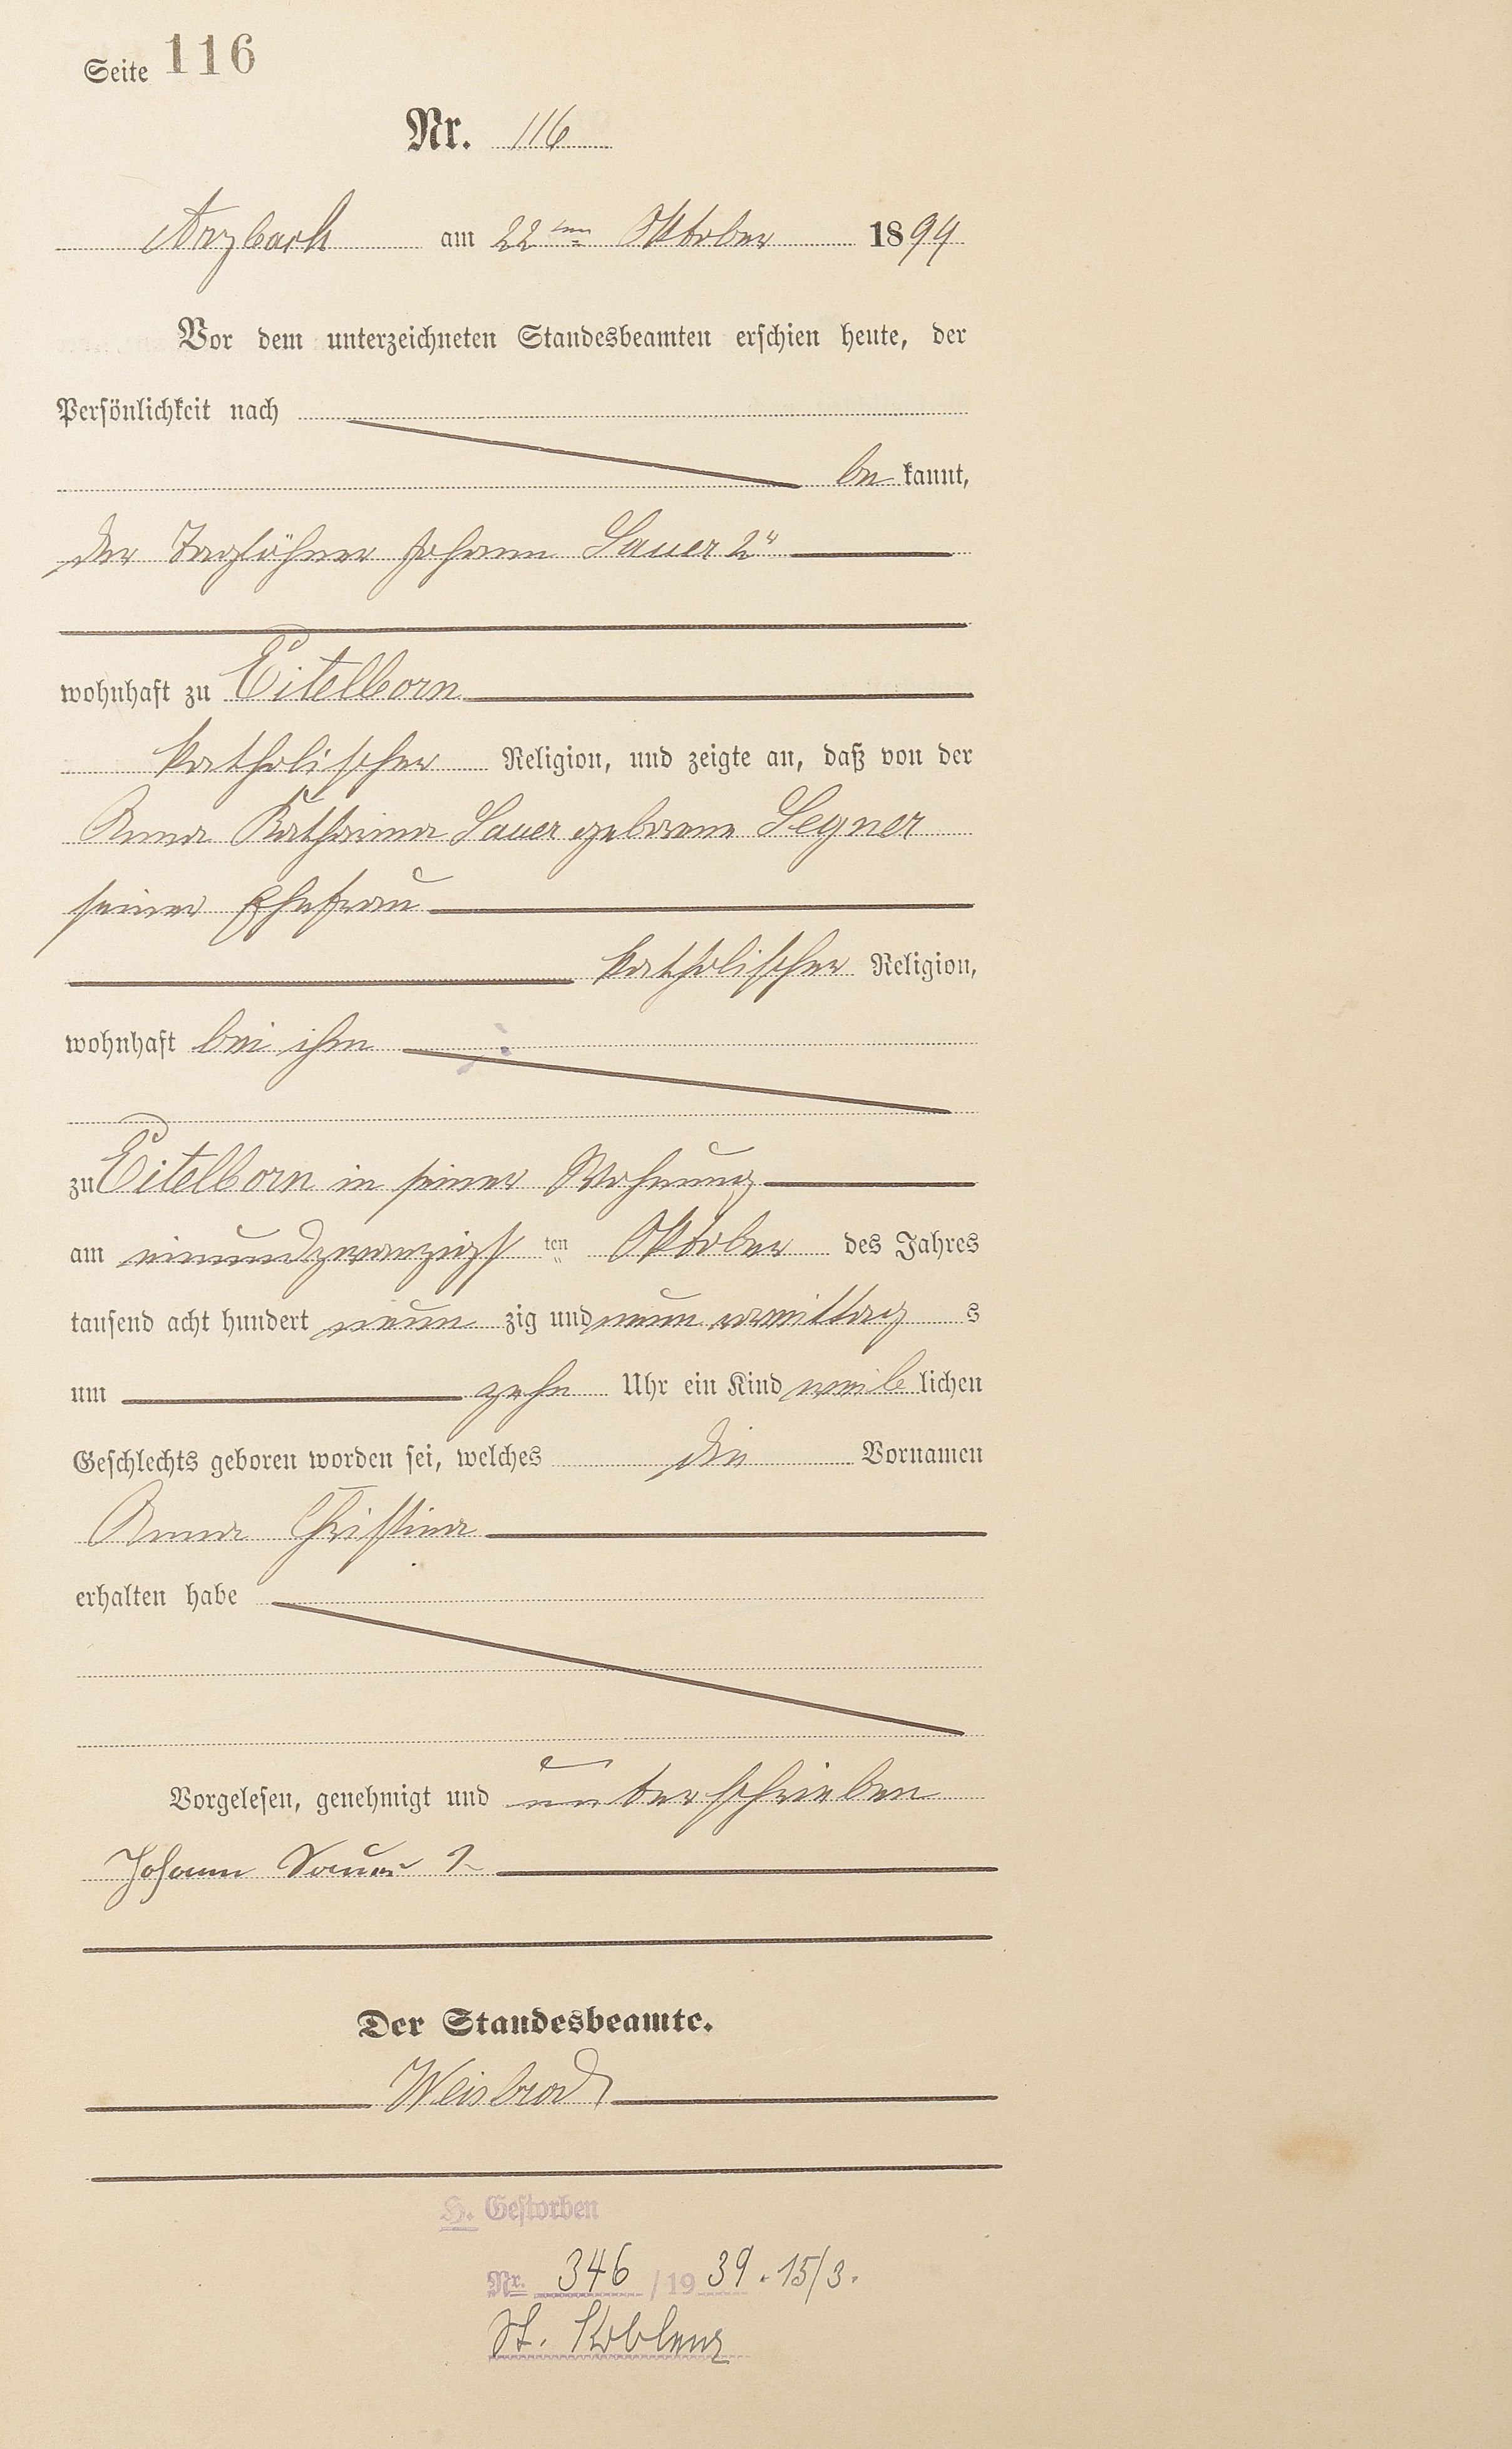 Seite 116
Nr. 116
Arzbach am 22ten Oktober 1899
Vor dem unterzeichneten Standesbeamten erschien heute, der
Persönlichkeit nach
be kannt,
der Taglöhner Johann Sauer 2r
wohnhaft zu Eitelborn
katholischer Religion, und zeigte an, daß von der
Anna Katharina Sauer geborene Legner
seiner Ehefrau
katholischer Religion,
wohnhaft bei ihm
zu Eitelborn in seiner Wohnung
am einundzwanzigsten Oktober des Jahres
tausend acht hundert neun zig und neun vormittag s
um zehn Uhr ein Kind weib lichen
Geschlechts geboren worden sei, welches die Vornamen
Anna Christina
erhalten habe
Vorgelesen, genehmigt und unterschrieben
Johann Sauer 2
Der Standesbeamte.
Weisbrod
H. Gestorben
Nr. 346 / 19 39. 15/3.
St. Koblenz